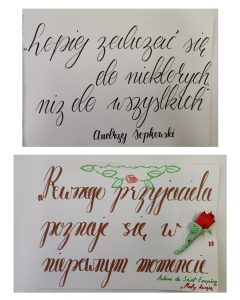 „Lepiej zaliczać się
do niektórych,
niż do wszystkich”
Andrzej Sapkowski
„Pewnego przyjaciela
poznaje się w
niepewnym momencie.”
Antoine de Saint-Exupéry
"Mały Książę"